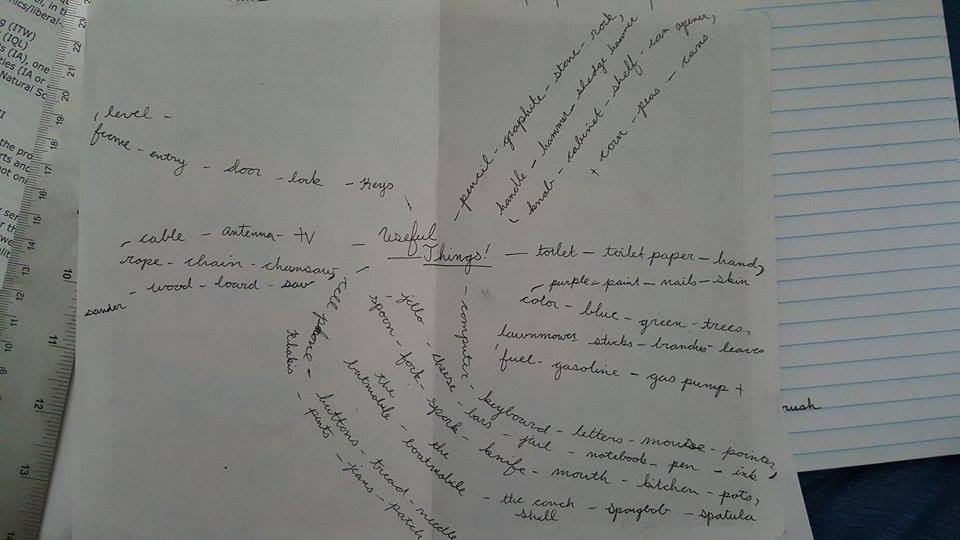 (ITW)
(IQL)
s (IA), one
ties (IA or
Natural Sc
, level -
frame - entry - door - lock - keys
cable - antenna - tv
rope - chain - chainsaw
- wood - board - saw
sander
Useful
Things!
- pencil - graphite - stone - rock,
handle - hammer - sledge hammer
knob - cabinet - shelf - can opener,
+ corn - peas - cans
- toilet - toilet paper - hand,
purple - paint - nails - skin
color - blue - green - trees,
lawnmower sticks - branches - leaves
fuel - gasoline - gas pump +
- computer - keyboard - letters - mouse - pointer,
- jello - cheese - bars - jail - notebook - pen - ink
spoon - fork - spork - knife - mouth - kitchen - pots,
the batmobile - the boatmobile - the conch shell - spongbob - spatula
cell phone - buttons - tread - needle
khakis - pants - jeans - patch
rush
23
22
21
20
19
18
17
16
15
14
13
12
11
10
11
12
13